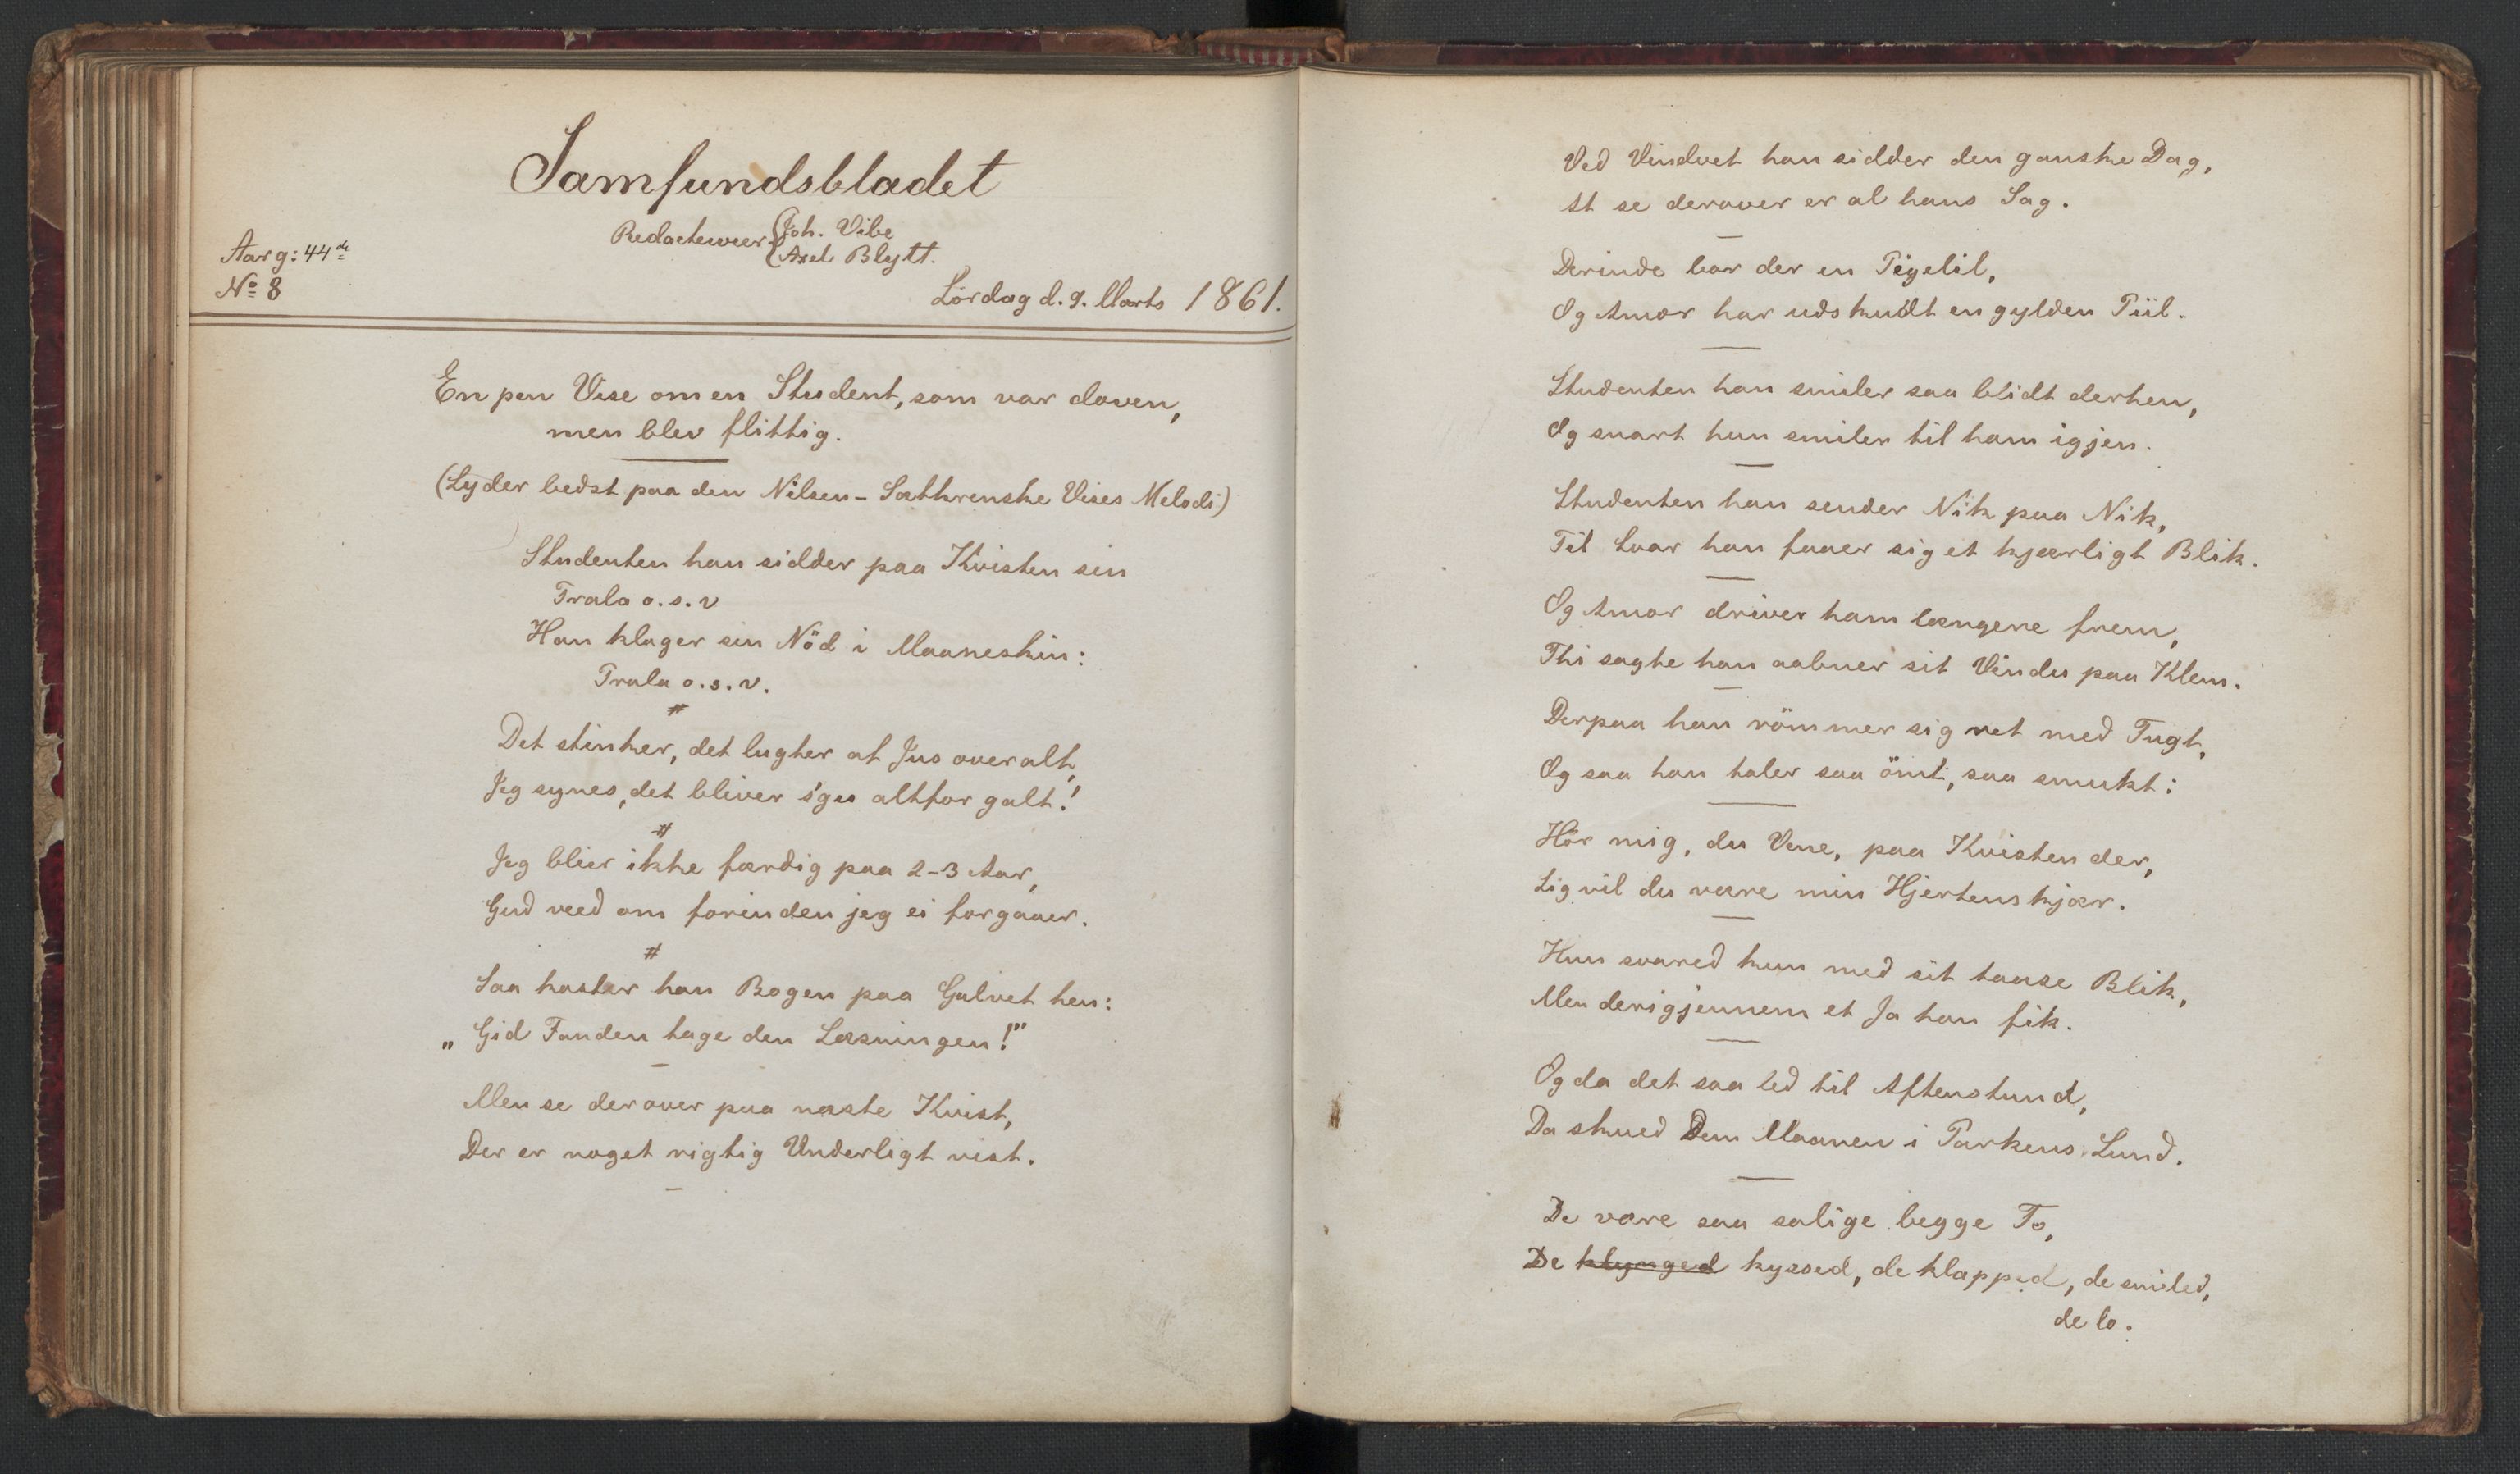 Samfundsbladet
Redacteurer Joh. Vibe
Axel Blytt.
Aarg: 44de
No 8
Lördag d. 9. Marts 1861.
En pen Vise om en Student, som var doven,
men blev flittig.
(Lyder bedst paa den Nilsen-Sæthrenske Vises Melodi)
Studenten han sidder paa Kvisten sin
Trala o.s.v
Han klager sin Nöd i Maaneskin:
Trala o.s.v.
#
Det stinker, det lugter af Jus overalt,
Jeg synes, det bliver s'gu altfor galt!
#
Jeg blier ikke færdig paa 2-3 Aar,
Gud veed om forinden jeg ei forgaaer.
#
Saa kaster han Bogen paa Gulvet hen:
„Gid Fanden tage den Læsningen!"
Men se derover paa næste Kvist,
Der er noget rigtig Underligt vist.
Ved Vinduet han sidder den ganske Dag,
At se derover er al hans Sag.
Derinde bor der en Pigelil,
Og Amor har udskudt en gylden Piil.
Studenten han smiler saa blidt derhen,
Og snart hun smiler til ham igjen.
Studenten han sender Nik paa Nik,
Til Svar han faaer sig et kjærligt Blik.
Og Amor driver ham længere frem,
Thi sagte han aabner sit Vindu paa Klem.
Derpaa han römmer sig ret med Tugt,
Og saa han taler saa ömt, saa smukt:
Hör mig, du Vene, paa Kvisten der,
Sig vil du være min Hjertenskjær.
Hun svared kun med sit taase Blik,
Men derigjennem et Ja han fik.
Og da det saa led til Aftenstund,
Da skued Dem Maanen i Parkens Lund.
De vare saa salige begge To,
De klynged kyssed, de klapped, de smiled,
de lo.